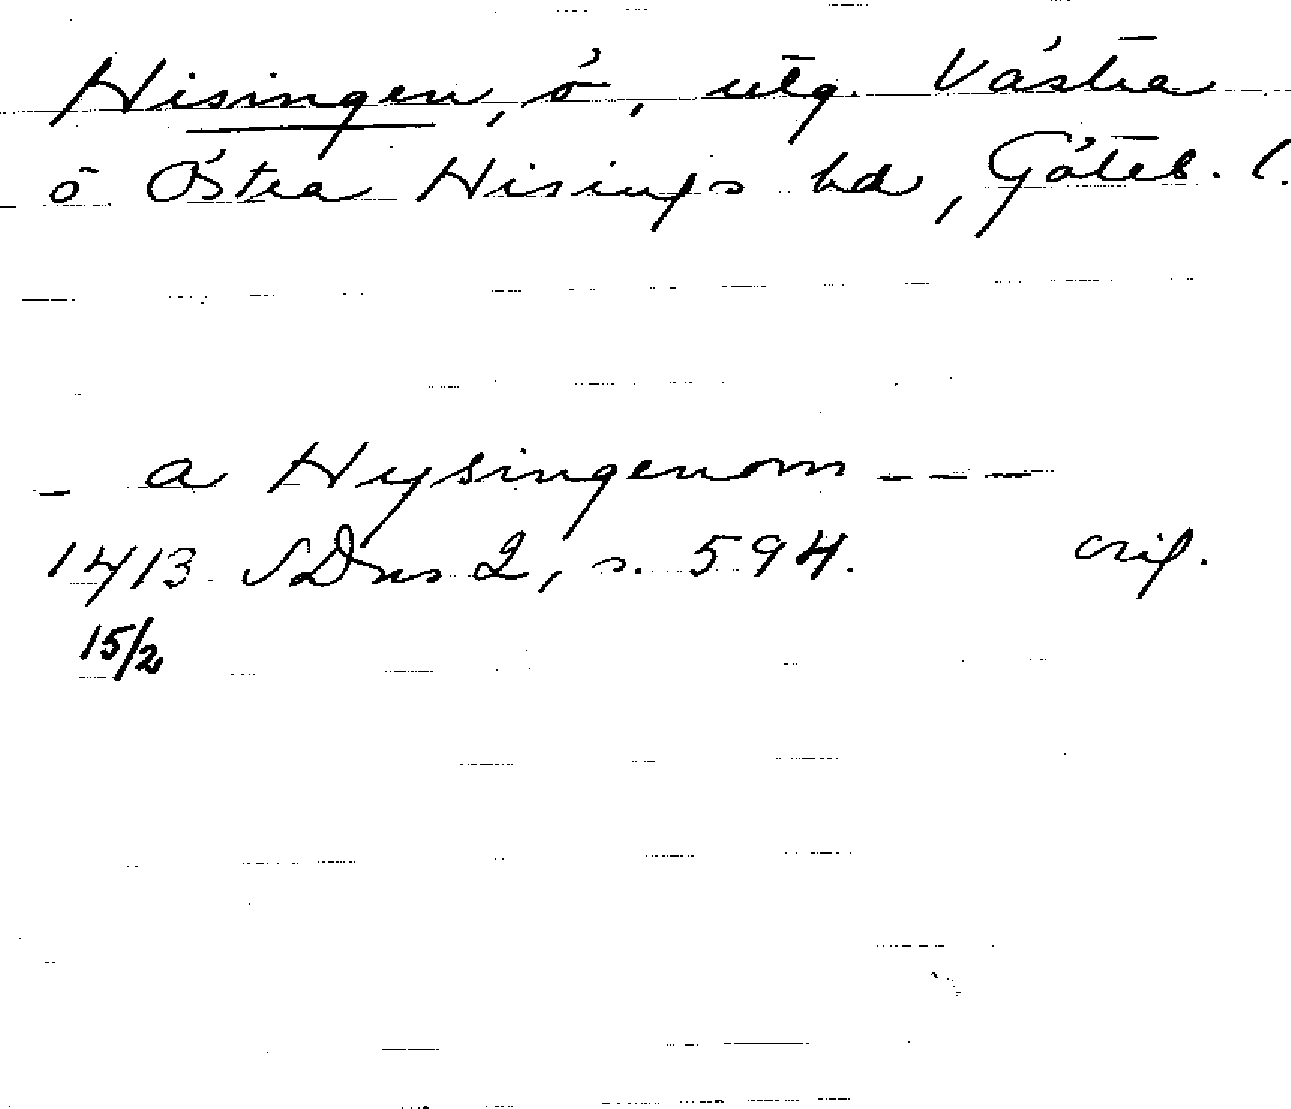 Hisingen, ö, utg. Västra
o Östra Hisings hd, Göteb. l.
_ a Hysingenom _ _ _
1413 SDns 2, s. 594. orig.
15/2